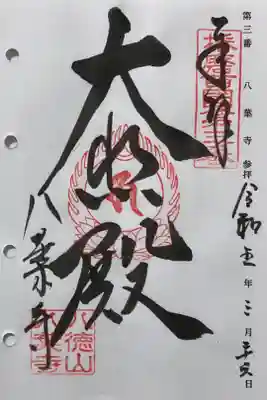 第三番 八葉寺 参拝 令和五年三月 日
奉拝
大悲殿
八葉寺
八徳山
八葉寺